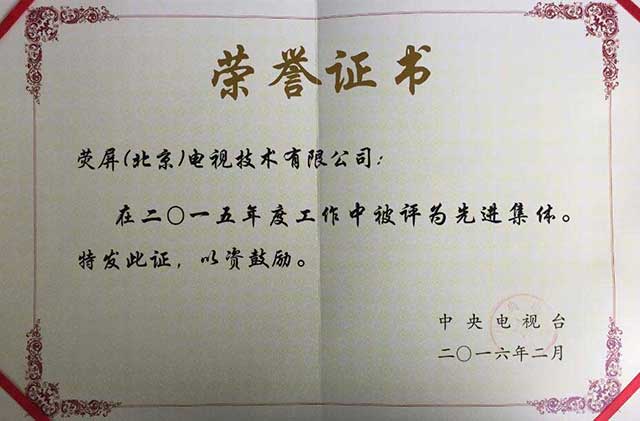 荣誉证书
荧屏(北京)电视技术有限公司:
在二〇一五年度工作中被评为先进集体。
特发此证，以资鼓励。
中央电视台
二〇一六年二月